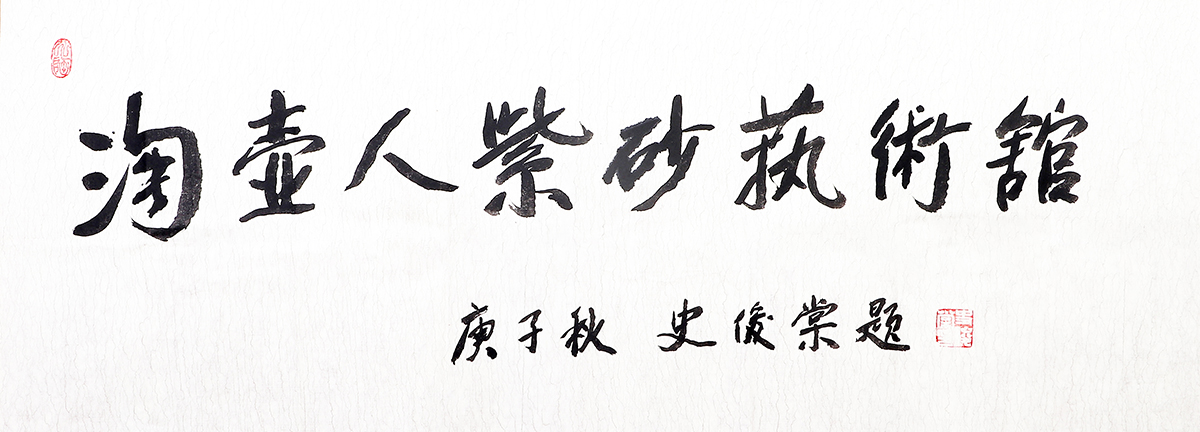 淘壶人紫砂艺術舘
庚子秋 史俊棠题